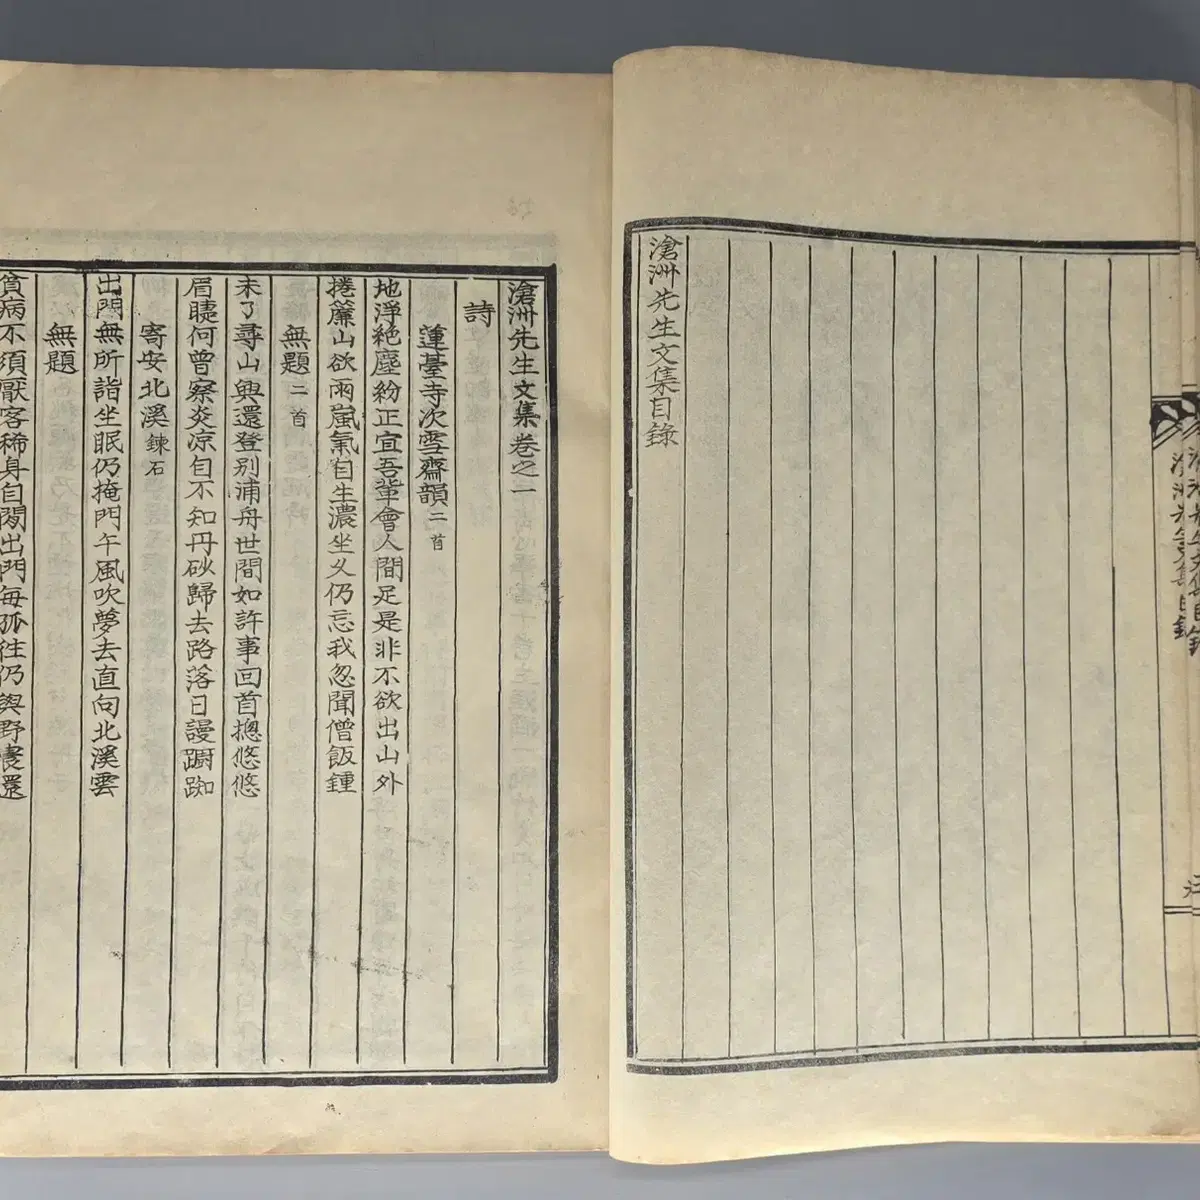 滄洲先生文集目錄
滄洲先生文集目錄
滄洲先生文集卷之一
詩
蓮臺寺次雪齋韻 二首
地淨絶塵紛正宜吾輩會人間足是非不欲出山外
捲簾山欲雨嵐氣自生濃坐久仍忘我忽聞僧飯鍾
無題 二首
未了尋山興還登別浦舟世間如許事回首摠悠悠
眉睫何曾察炎凉自不知丹砂歸去路落日謾踟
寄安北溪 鍊石
出門無所詣坐眠仍掩門午風吹夢去直向北溪雲
無題
貧病不須厭客稀身自閑出門每孤往仍與野還